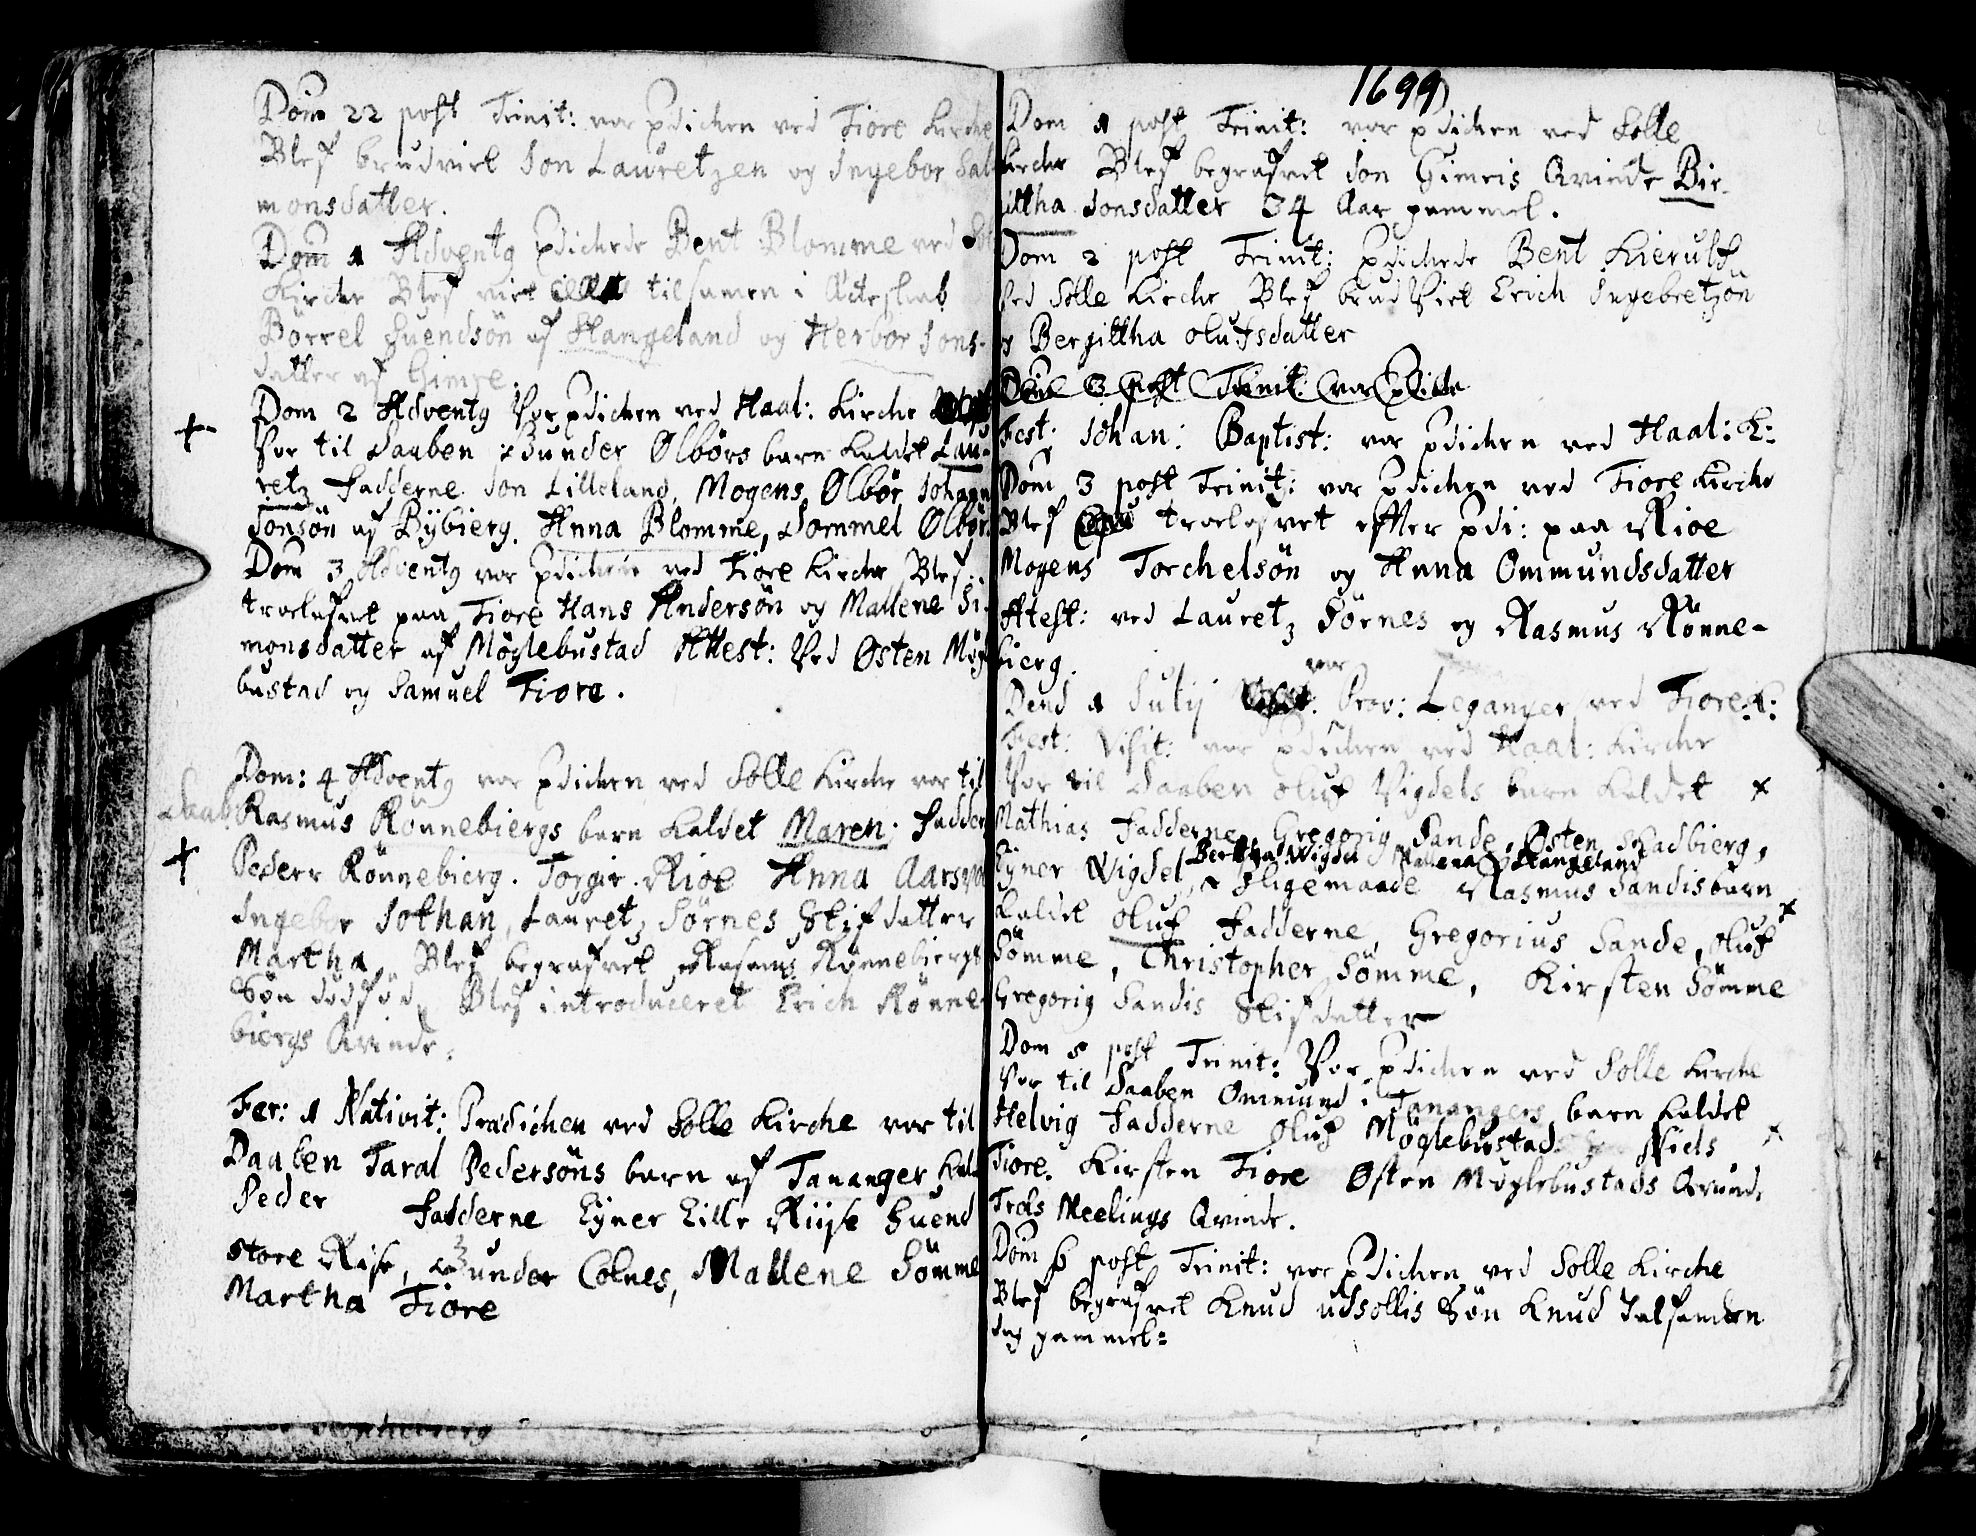 Dom 22 post Trinit: var Pdichen ved Tiore Kirche
Blef brudviet Jon Lauretzen og Ingebor Sal
monsdatter.
Dom 1 Adventg Pdichede Bent Blomme ved Sol
Kirche Blef viet tilsamen i Ecteskab
Börrel Suendsön af Hangeland og Herbor Jons-
datter af Gimre
Dom 2 Adventg Var Pdichen ved Haal: Kirche
Var til Daaben Zunder Ølbörs barn Kaldet Lau-
retz Fadderne Jon Lilleland, Mogens Ølbör, Johann
Jonsön af Bÿbierg. Anna Blomme, Sommel Ølbör
Dom 3 Adventg var Pdichen ved Tiore Kirche Blef
trolofvet paa Tiore Hans Andersön og Mallene Si-
monsdatter af Möglebustad Attest: Ved Østen Mög
bustad og Samuel Tiore.
Dom: 4 Adventg var Pdichen ved Solle Kirche var til
Daab Rasmus Rönnebiergs barn Kaldet Maren. Fadder
Peder Rönnebierg. Torgir Rioe Anna Aarsvo
Ingebor Jothan, Lauretz Sörnes Stifdatter
Martha. Blef begrafvet Rasmus Rönnebiergs
Sön dödföd, Blef introduceret Erich Rönne-
biergs Qvinde.
Fer: 1 Nativit: Prædichen ved Solle Kirche var til
Daaben Taral Pedersöns barn af Tananger Kal
Peder Fadderne Ejner Lille Riise Suend
store Rise, Zunder Colnes, Mallene Sömme
Martha Tiore
1699
Dom 1 post Trinit: var pdichen ved Solle
Kirche Blef begrafvet Jon Gimris Qvinde Bir-
gittha Jonsdatter 34 Aar gammel.
Dom 2 post Trinit: Pdichede Bent Kierulf
Ved Solle Kirche Blef brudViet Erich Ingebretzon
og Bergittha Olufsdatter
Dom 3 post Trinit: var Pdiche
Fest: Johan: Baptist: var Pdichen ved Haal: K:
Dom 3 post Trinit: var Pdichen ved Tiore Kirche
Blef trolofvet effter Pdi: paa Rioe
Mogens Torchelsön og Anna Ommundsdatter
Attest: ved Lauretz Sörnes og Rasmus Rönne-
bierg.
var
Dend 1 Julij Prov: Leganger ved Tiore K:
Fest: Visit: var Pdichen ved Haal: Kirche
Var til Daaben Oluf Vigdels barn Kaldet
Mathias Fadderne, Gregorig Sande, Østen Skadbierg,
Bertha Wigdel Mallena Hangeland
Ejner Wigdel, Ligemaade Rasmus Sandis barn
Kaldet Oluf Fadderne, Gregorius Sande, Oluf
Sömme, Christopher Sömme, Kirsten Sömme
Gregorig Sandis Stifdatter
Dom 5 post Trinit: Var Pdichen ved Solle Kirche
Var til Daaben Ommund i Tanangers barn Kaldet
Helvig Fadderne Oluf Möglebustad Niels
Tiore. Kirsten Tiore Østen Möglebustads Qvinde
Trols Meelings Qvinde.
Dom 6 post Trinit: var Pdichen ved Solle Kirche
Blef begrafvet Knud udsollis Sön Knud
dag gammel: